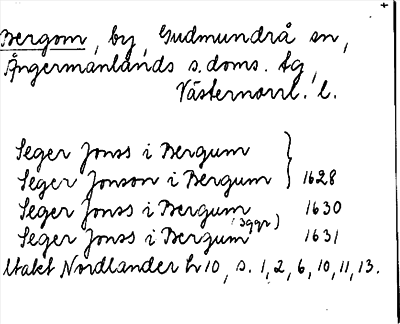 Bergom, by, Gudmundrå sn,
Ångermanlands s. doms. tg,
Västernorrl. l.
Seger Jonss i Bergum
Seger Jonson i Bergum } 1628
Seger Jonss i Bergum 1630
(3ggr)
Seger Jonss i Bergum 1631
Utakt Nordlander hr 10, s. 1, 2, 6, 10, 11, 13.